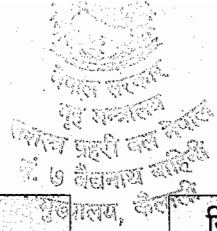 नेपाल सरकार
गृह मन्त्रालय
सशस्त्र प्रहरी बल नेपाल
नं. ७ बैद्यनाथ वाहिनी
मुख्यालय,